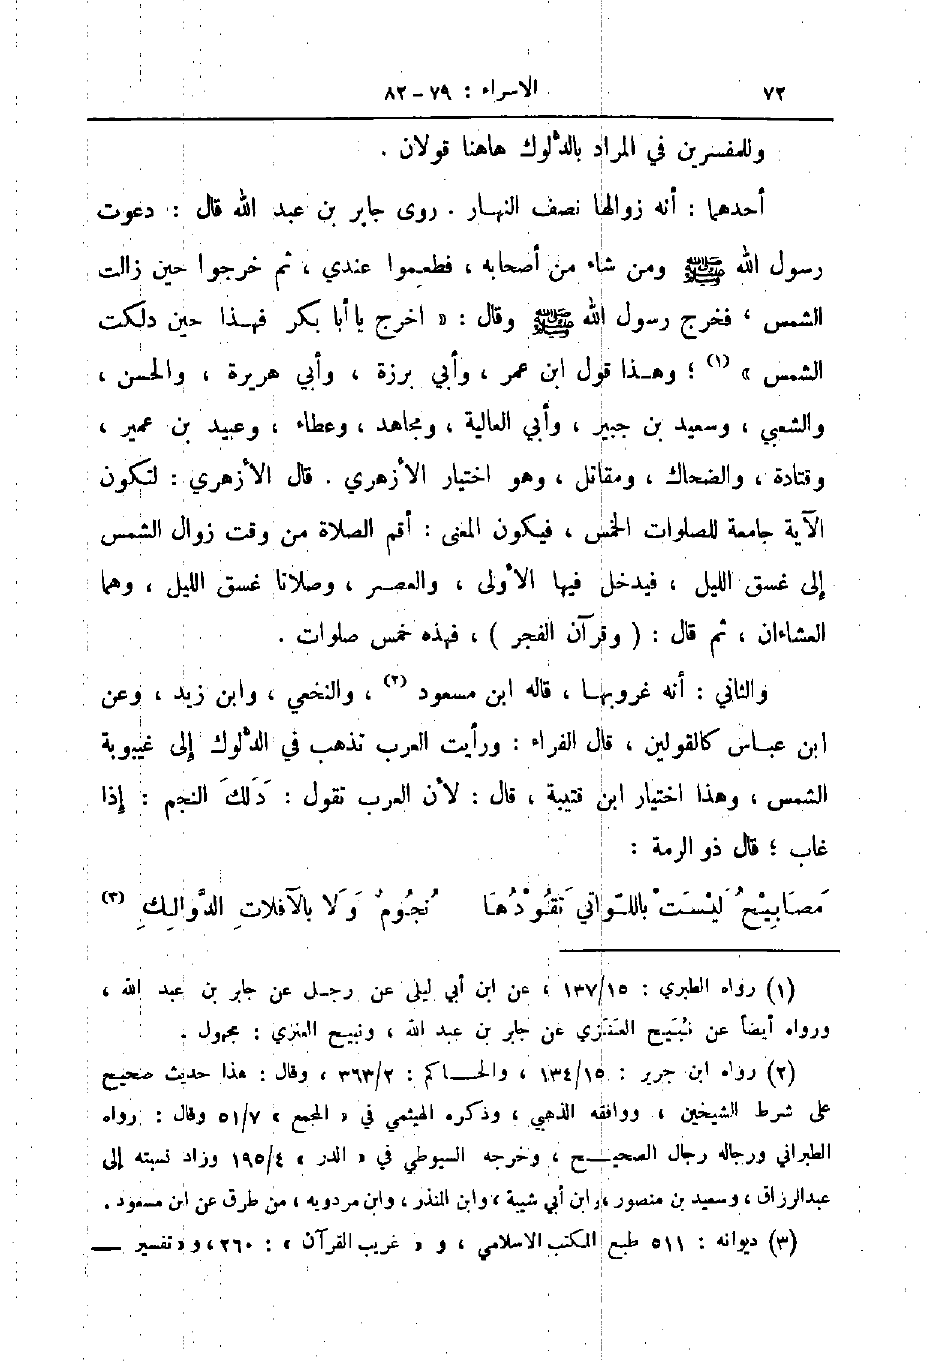 ٧٢
الاسراء : ٧٩ - ٨٢
وللمفسرين في المراد بالدلوك هاهنا قولان .
أحدهما : أنه زوالها نصف النهار . روى جابر بن عبد الله قال : دعوت
رسول الله ﷺ ومن شاء من أصحابه ، فطعموا عندي ، ثم خرجوا حين زالت
الشمس ، فخرج رسول الله ﷺ وقال : « اخرج يا أبا بكر فهذا حين دلكت
الشمس » (١) ؛ وهذا قول ابن عمر ، وأبي برزة ، وأبي هريرة ، والحسن ،
والشعبي ، وسعيد بن جبير ، وأبي العالية ، ومجاهد ، وعطاء ، وعبيد بن عمير ،
وقتادة ، والضحاك ، ومقاتل ، وهو اختيار الأزهري . قال الأزهري : لتكون
الآية جامعة للصلوات الخمس ، فيكون المعنى : أقم الصلاة من وقت زوال الشمس
إلى غسق الليل ، فيدخل فيها الأولى ، والعصر ، وصلاتا غسق الليل ، وهما
العشاءان ، ثم قال : ( وقرآن الفجر ) ، فهذه خمس صلوات .
والثاني : أنه غروبها ، قاله ابن مسعود (٢) ، والنخعي ، وابن زيد ، وعن
ابن عباس كالقولين ، قال الفراء : ورأيت العرب تذهب في الدلوك إلى غيبوبة
الشمس ، وهذا اختيار ابن قتيبة ، قال : لأن العرب تقول : دَلَكَ النجم : إذا
غاب ؛ قال ذو الرمة :
مَصَابِيْحُ لَيْسَتْ بِاللَّوَاتي تَقُوْدُهَا نُجُومٌ وَلَا بِالآفِلَاتِ الدَّوَالِكِ (٣)
(١) رواه الطبري : ١٣٧/١٥ ، عن ابن أبي ليلى عن رجل عن جابر بن عبد الله ،
ورواه أيضاً عن نُبَيح العَنَزي عن جابر بن عبد الله ، ونبيح العنزي : مجهول .
(٢) رواه ابن جرير : ١٣٤/١٥ ، والحاكم : ٣٦٣/٢ ، وقال : هذا حديث صحيح
على شرط الشيخين ، ووافقه الذهبي ، وذكره الهيثمي في « المجمع » ٥١/٧ وقال : رواه
الطبراني ورجاله رجال الصحيح ، وخرجه السيوطي في « الدر » ١٩٥/٤ وزاد نسبته إلى
عبدالرزاق ، وسعيد بن منصور ، وابن أبي شيبة ، وابن المنذر ، وابن مردويه ، من طرق عن ابن مسعود .
(٣) ديوانه : ٥١١ طبع المكتب الاسلامي ، و « غريب القرآن » : ٢٦٠ ، و « تفسير —